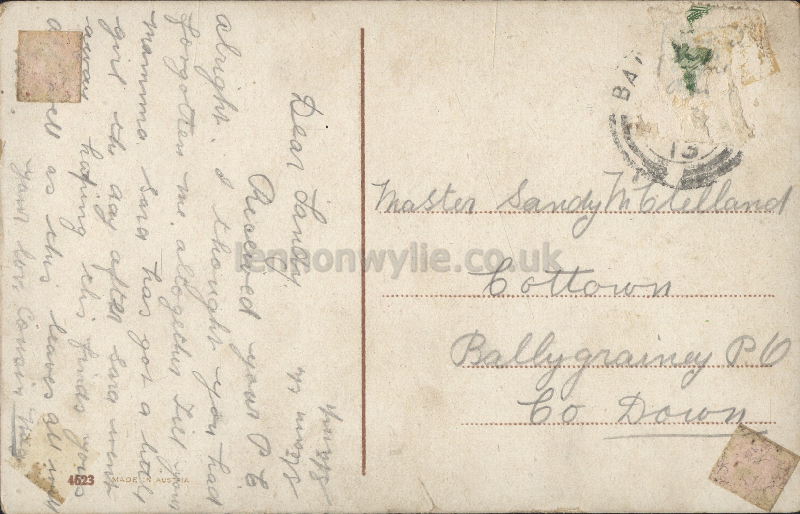 Steam St
Newry
Dear Sandy.
Received your P C
alright. I thought you had
forgotten me altogether Tell your
mamma Sara has got a little
girl the day after Sara went
away hoping this finds you
well as this leaves all well
your lov. Cousin
Master Sandy McClelland
Cottown
Ballygrainey P O
Co Down
BA
13
4523
MADE IN AUSTRIA
lennonwylie.co.uk